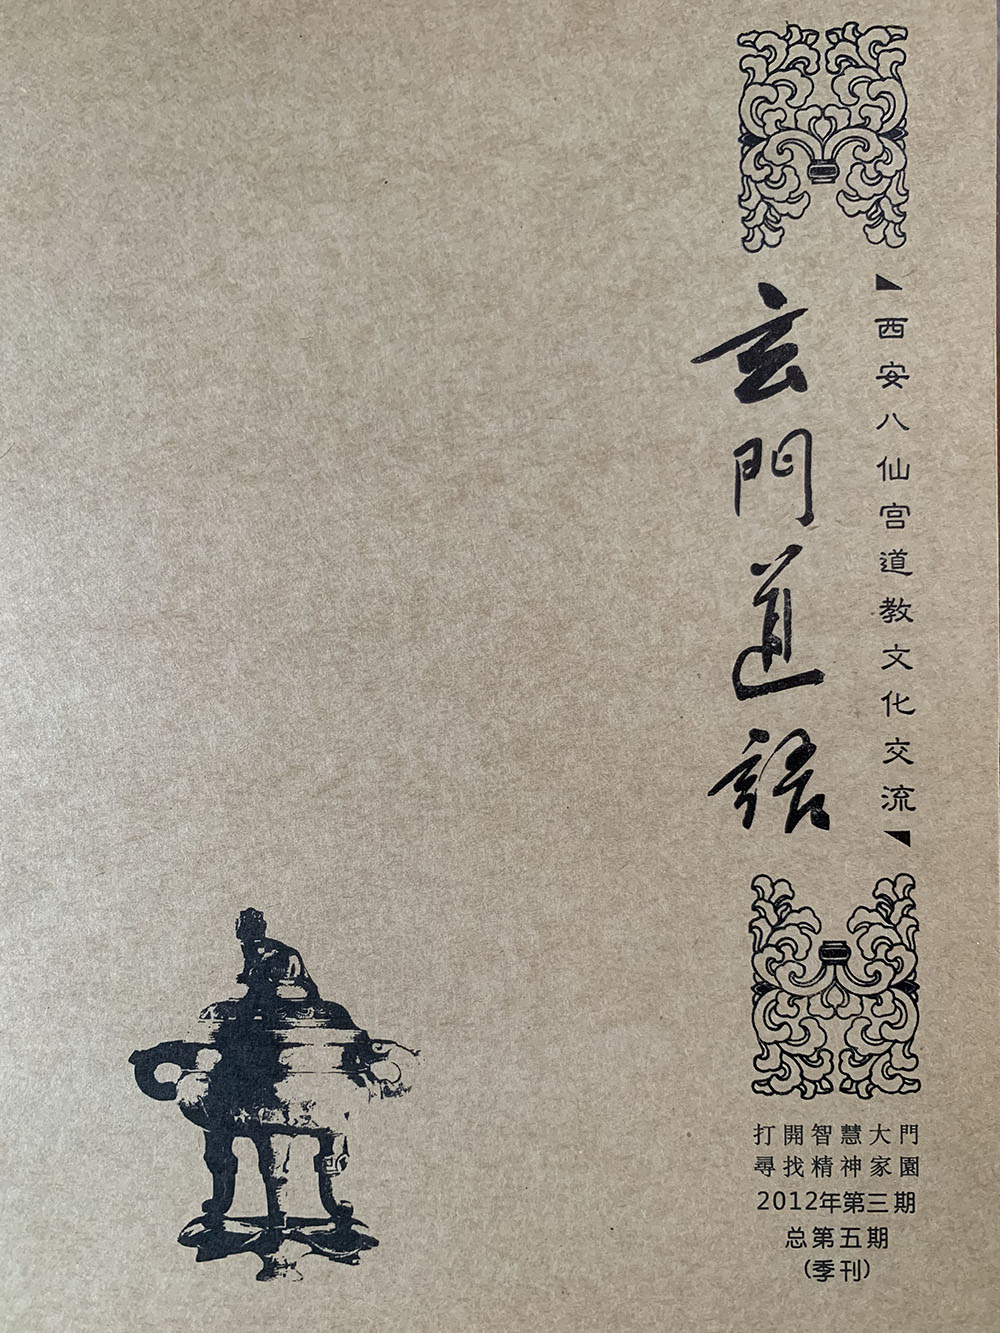 西安八仙宫道教文化交流
玄門道語
打開智慧大門
尋找精神家園
2012年第三期
总第五期
(季刊)